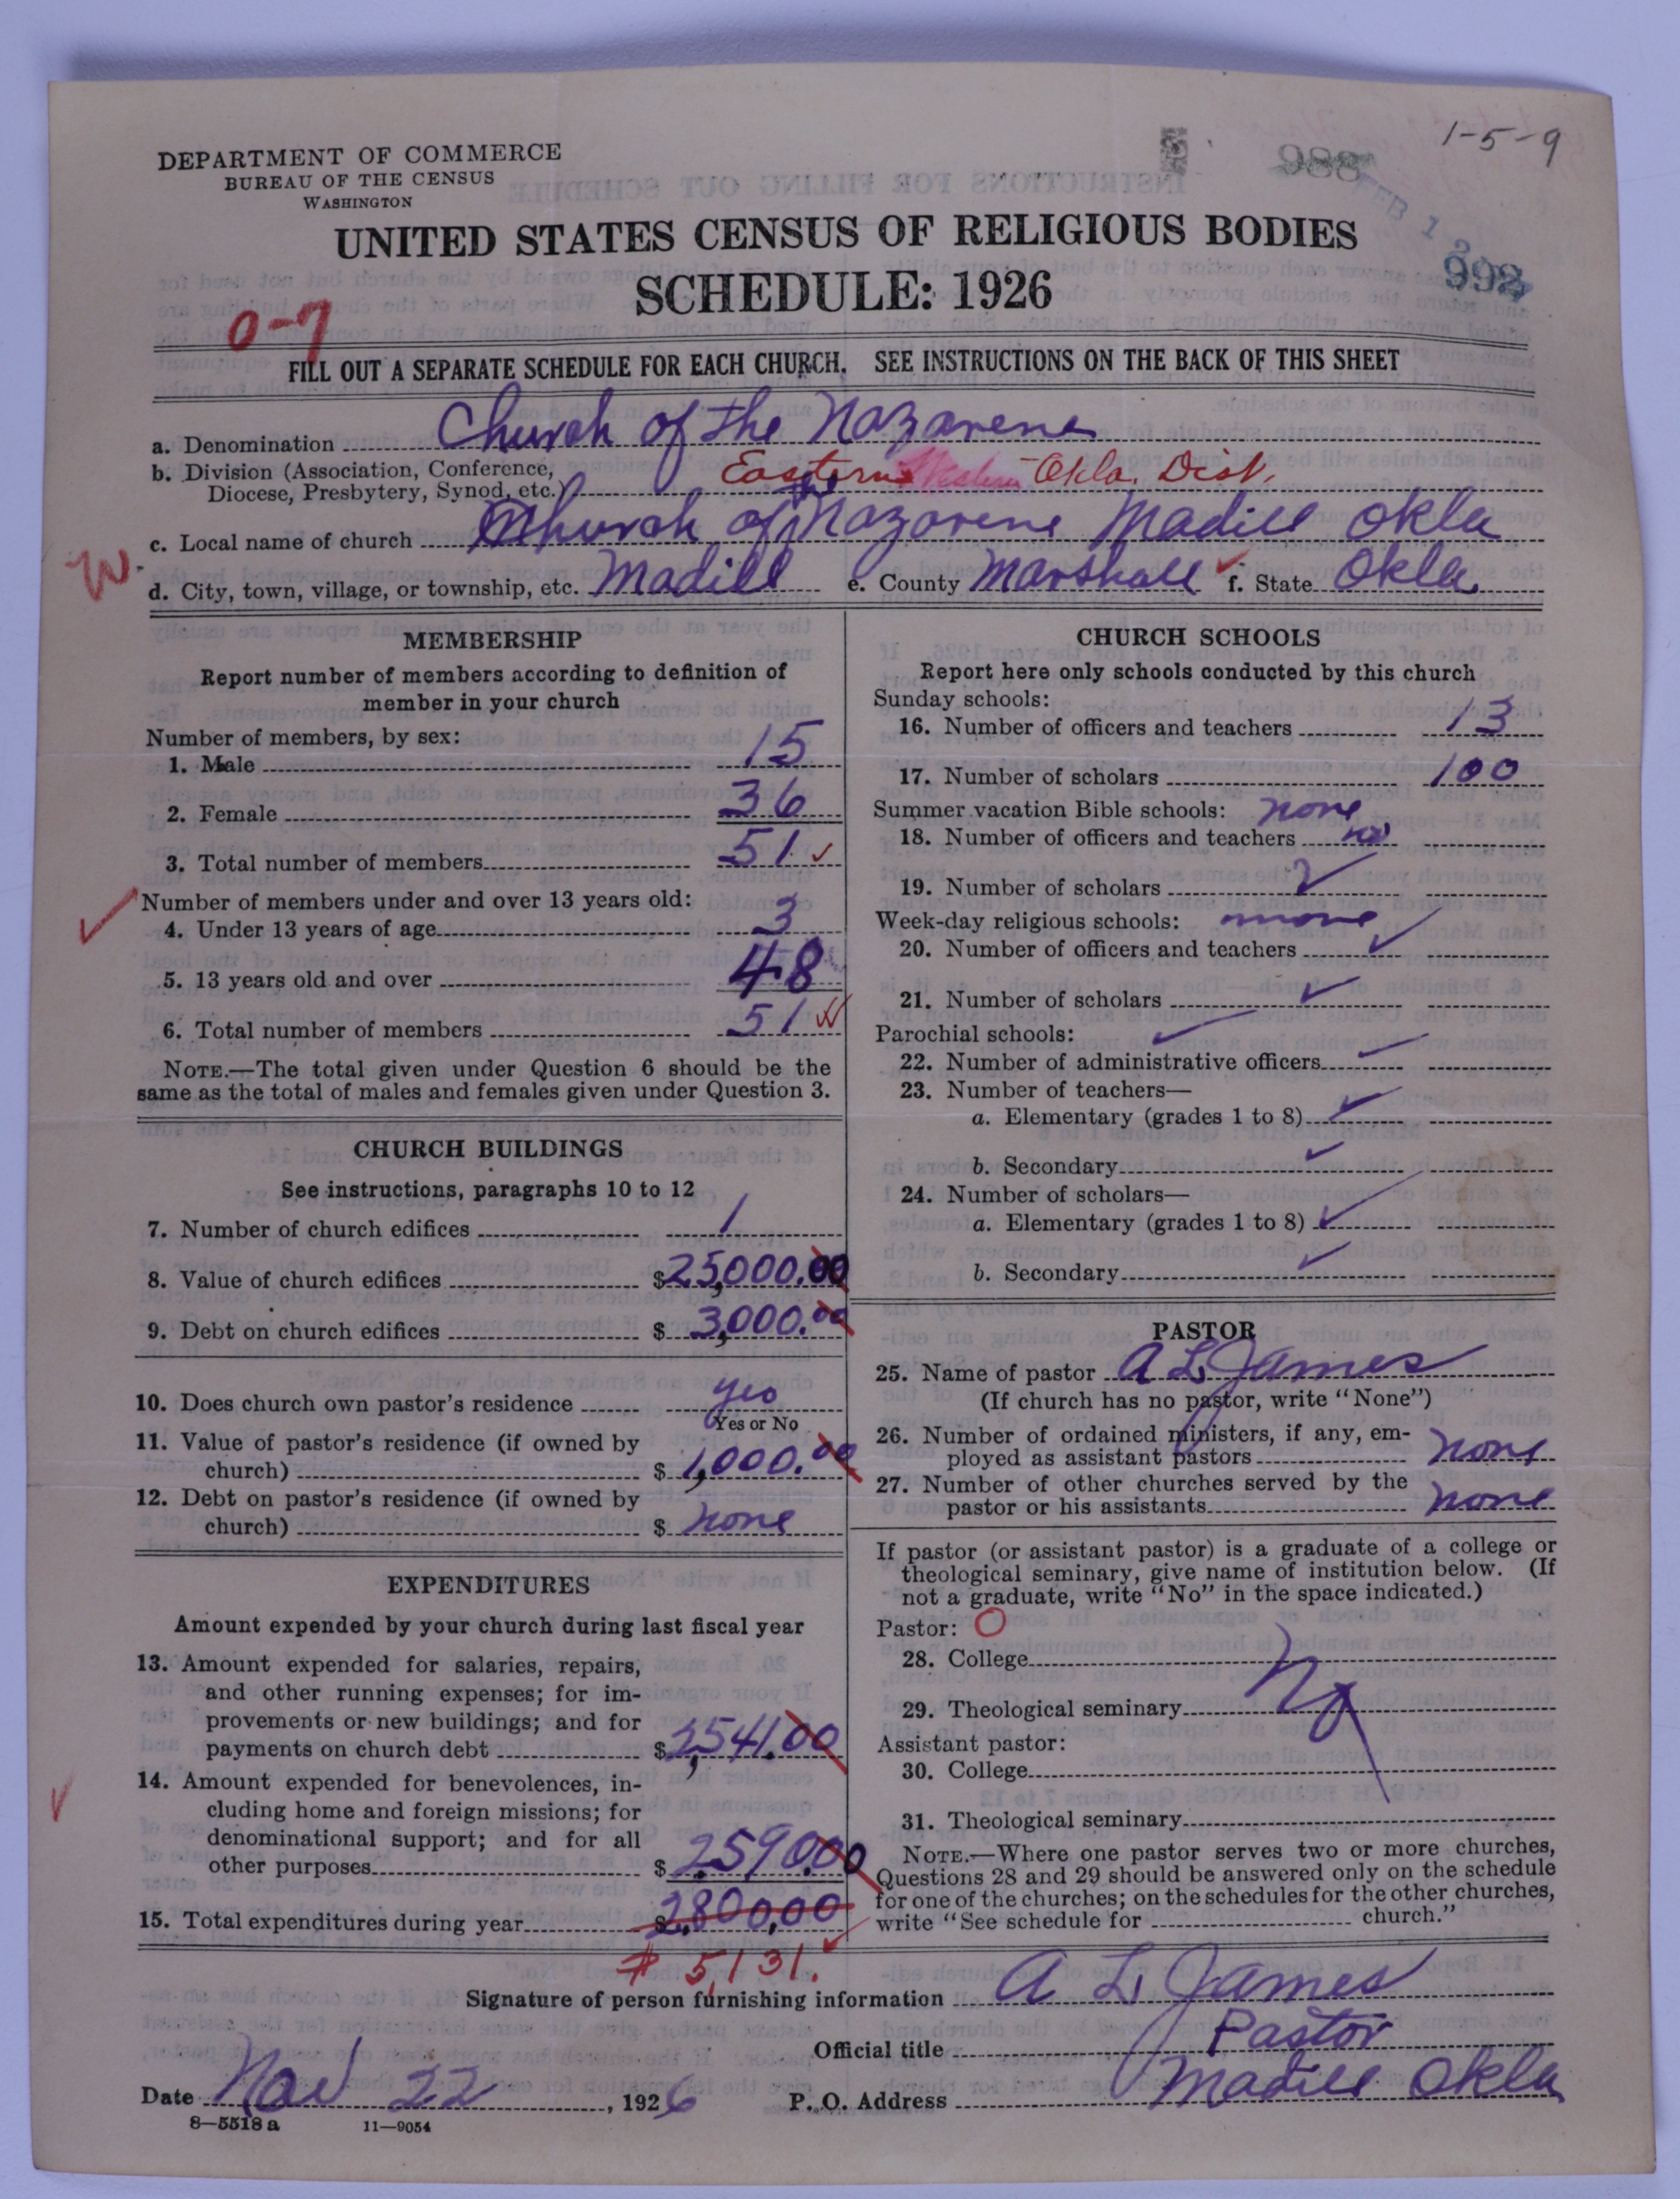 1-5-9
988
DEPARTMENT OF COMMERCE
BUREAU OF THE CENSUS
WASHINGTON
FEB 1
992
UNITED STATES CENSUS OF RELIGIOUS BODIES
SCHEDULE: 1926
0-7
FILL OUT A SEPARATE SCHEDULE FOR EACH CHURCH. SEE INSTRUCTIONS ON THE BACK OF THIS SHEET
a. Denomination Church of the Nazarene
b. Division (Association, Conference,
Diocese, Presbytery, Synod, etc.) Eastern Western Okla. Dist.
c. Local name of church Church of the Nazarene Madill Okla
W.
d. City, town, village, or township, etc. Madill e. County Marshall f. State Okla.
MEMBERSHIP
Report number of members according to definition of
member in your church
Number of members, by sex:
1. Male 15
2. Female 36
3. Total number of members 51 ✓
Number of members under and over 13 years old:
4. Under 13 years of age 3
5. 13 years old and over 48
6. Total number of members 51
NOTE.—The total given under Question 6 should be the
same as the total of males and females given under Question 3.
CHURCH BUILDINGS
See instructions, paragraphs 10 to 12
7. Number of church edifices 1
8. Value of church edifices $25,000.00
9. Debt on church edifices $3,000.00
10. Does church own pastor's residence yes
Yes or No
11. Value of pastor's residence (if owned by
church) $1,000.00
12. Debt on pastor's residence (if owned by
church) $ none
EXPENDITURES
Amount expended by your church during last fiscal year
13. Amount expended for salaries, repairs,
and other running expenses; for im-
provements or new buildings; and for
payments on church debt $2,541.00
14. Amount expended for benevolences, in-
cluding home and foreign missions; for
denominational support; and for all
other purposes $2590.00
15. Total expenditures during year $2,800,00
# 5,131.
CHURCH SCHOOLS
Report here only schools conducted by this church
Sunday schools:
16. Number of officers and teachers 13
17. Number of scholars 100
Summer vacation Bible schools: none
18. Number of officers and teachers no
19. Number of scholars ✓
Week-day religious schools: none
20. Number of officers and teachers ✓
21. Number of scholars ✓
Parochial schools: ✓
22. Number of administrative officers ✓
23. Number of teachers—
a. Elementary (grades 1 to 8) ✓
b. Secondary ✓
24. Number of scholars—
a. Elementary (grades 1 to 8) ✓
b. Secondary ✓
PASTOR
25. Name of pastor A L James
(If church has no pastor, write "None")
26. Number of ordained ministers, if any, em-
ployed as assistant pastors none
27. Number of other churches served by the
pastor or his assistants none
If pastor (or assistant pastor) is a graduate of a college or
theological seminary, give name of institution below. (If
not a graduate, write "No" in the space indicated.)
Pastor: O
28. College
29. Theological seminary No
Assistant pastor:
30. College
31. Theological seminary
NOTE.—Where one pastor serves two or more churches,
Questions 28 and 29 should be answered only on the schedule
for one of the churches; on the schedules for the other churches,
write "See schedule for church."
Signature of person furnishing information A L James
Official title Pastor
Date Nov 22, 1926 P. O. Address Madill Okla
8—5518 a 11—9054